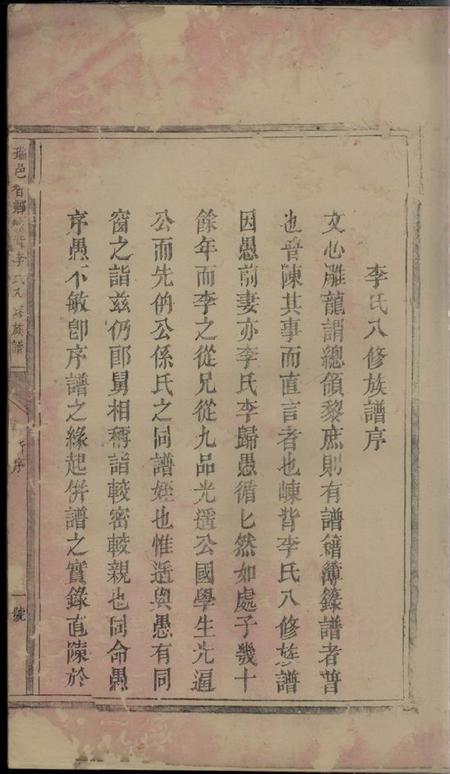 李氏八修族譜序
文心雕龍謂總領黎庶則有譜籍簿籙譜者普
也普陳其事而直言者也崠背李氏八修族譜
因愚前妻亦李氏李歸愚循匕然如處子幾十
餘年而李之從兄從九品光遥公國學生光逼
公而先的公係氏之同譜姪也惟逓與愚有同
窗之誼兹仍郎舅相稱誼較密較親也同命愚
序愚不敏卽序譜之緣起併譜之實錄直陳於
瑞邑 鄉崠背李氏八修族譜
序
一號